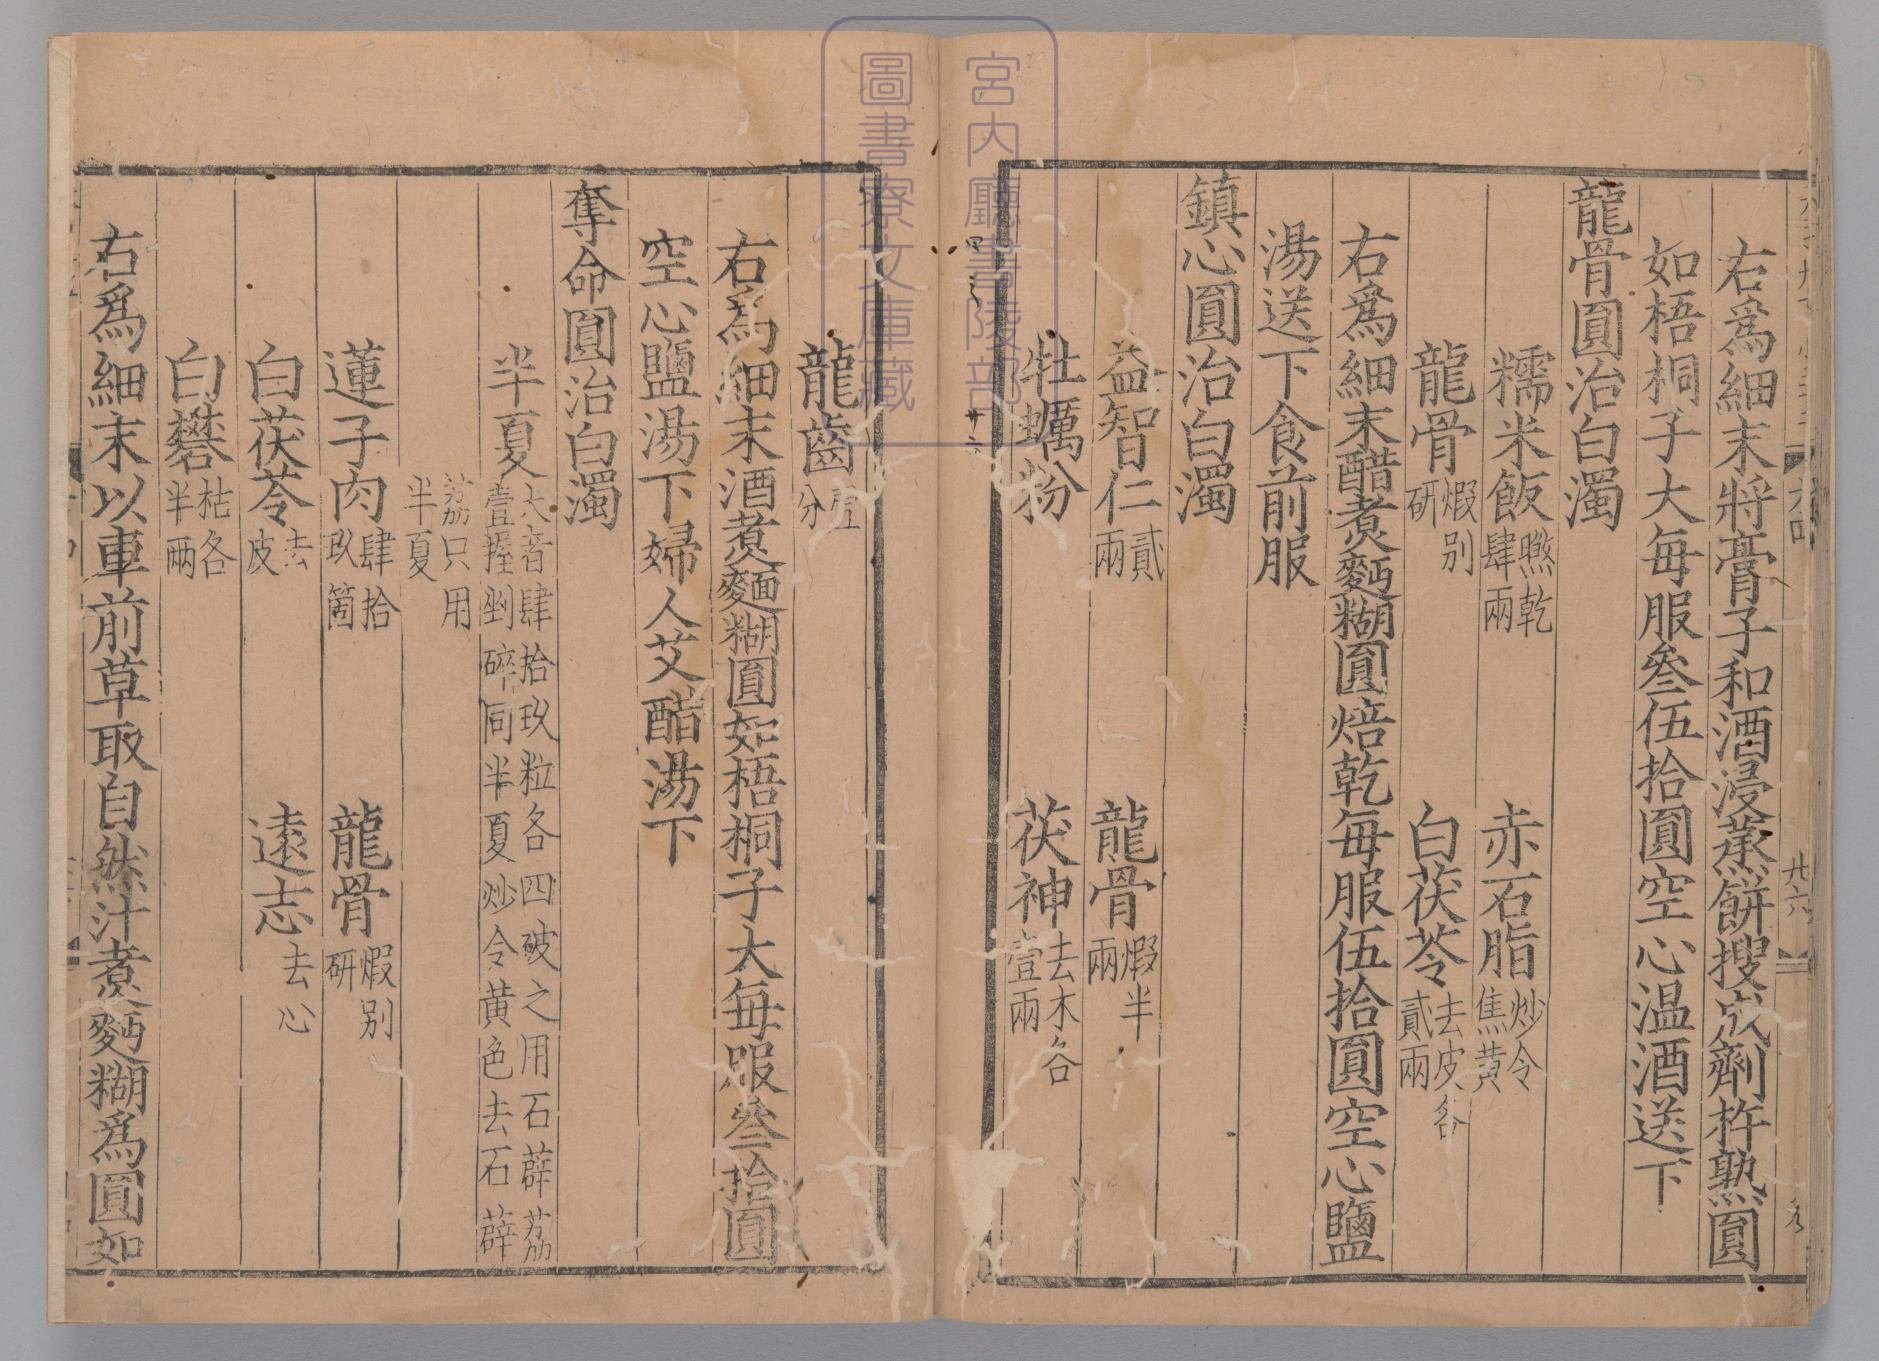 右爲細末將膏子和酒浸蒸餅搜成劑杵熟圓
如梧桐子大每服叄伍拾圓空心温酒送下
龍骨圓治白濁
糯米飯㬠乾肆兩　赤石脂炒令焦黄
龍骨煆别研　白茯苓去皮各貳兩
右爲細末醋煮麪糊圓焙乾每服伍拾圓空心鹽
湯送下食前服
鎮心圓治白濁
益智仁貳兩　龍骨煆半兩
牡蠣粉　茯神去木各壹兩
龍齒壹分
右爲細末酒煮麵糊圓如梧桐子大每服叄拾圓
空心鹽湯下婦人艾醋湯下
奪命圓治白濁
半夏大者肆拾玖粒各四破之用石薜荔壹握剉碎同半夏炒令黄色去石薜
荔只用半夏
蓮子肉肆拾玖箇　龍骨煆别研
白茯苓去皮　遠志去心
白礬枯各半兩
右爲細末以車前草取自然汁煮麪糊爲圓如
廿六
宮内廳書陵部
圖書寮文庫藏